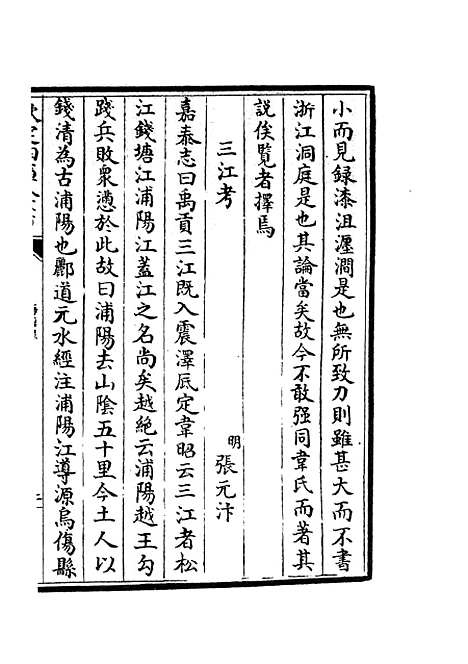 小而見録漆沮瀍澗是也無所致力則雖甚大而不書
浙江洞庭是也其論當矣故今不敢强同韋氏而著其
説俟覽者擇焉
三江考
明張元汴
嘉泰志曰禹貢三江既入震澤厎定韋昭云三江者松
江錢塘江浦陽江葢江之名尚矣越絶云浦陽越王勾
踐兵敗衆懣於此故曰浦陽去山陰五十里今土人以
錢清為古浦陽也酈道元水經注浦陽江導源烏傷縣